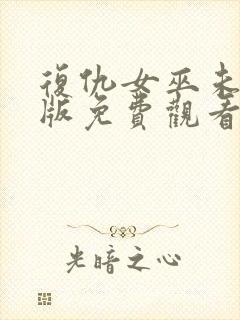 復仇女巫未
版免費觀看
光暗之心